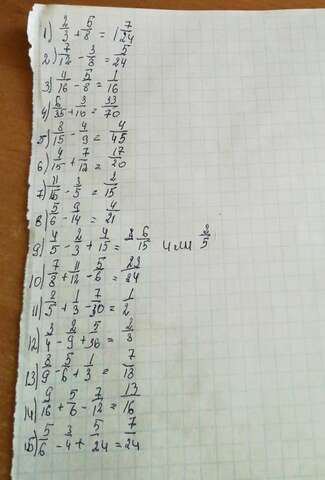 1) 2/3 + 5/8 = 1 7/24
2) 7/12 - 3/8 = 5/24
3) 11/16 - 5/8 = 1/16
4) 6/35 + 3/10 = 33/70
5) 8/15 - 4/9 = 4/45
6) 4/15 + 7/12 = 17/20
7) 11/15 - 3/5 = 2/15
8) 5/6 - 9/14 = 4/21
9) 4/5 - 2/3 + 4/15 = 6/15 или 2/5
10) 7/8 + 11/12 - 5/6 = 23/24
11) 2/5 + 1/3 - 7/30 = 1/2
12) 3/4 - 2/9 + 5/36 = 2/3
13) 8/9 - 5/6 + 1/3 = 7/18
14) 9/16 + 5/6 - 7/12 = 13/16
15) 5/6 - 3/4 + 5/24 = 7/24